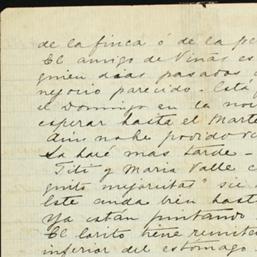 de la finca ó de la pe
El amigo de Viñas es
guien dias pasados
nejocio parecido. Está
el Domingo en la no
esperar hasta el Marte
Aun no he podido ve
La haré mas tarde -
Titi y Maria Valle c
guito mejorcita" sie
Este anda bien hast
Ya estan puntando
El lorito tiene remite
inferior del estómago